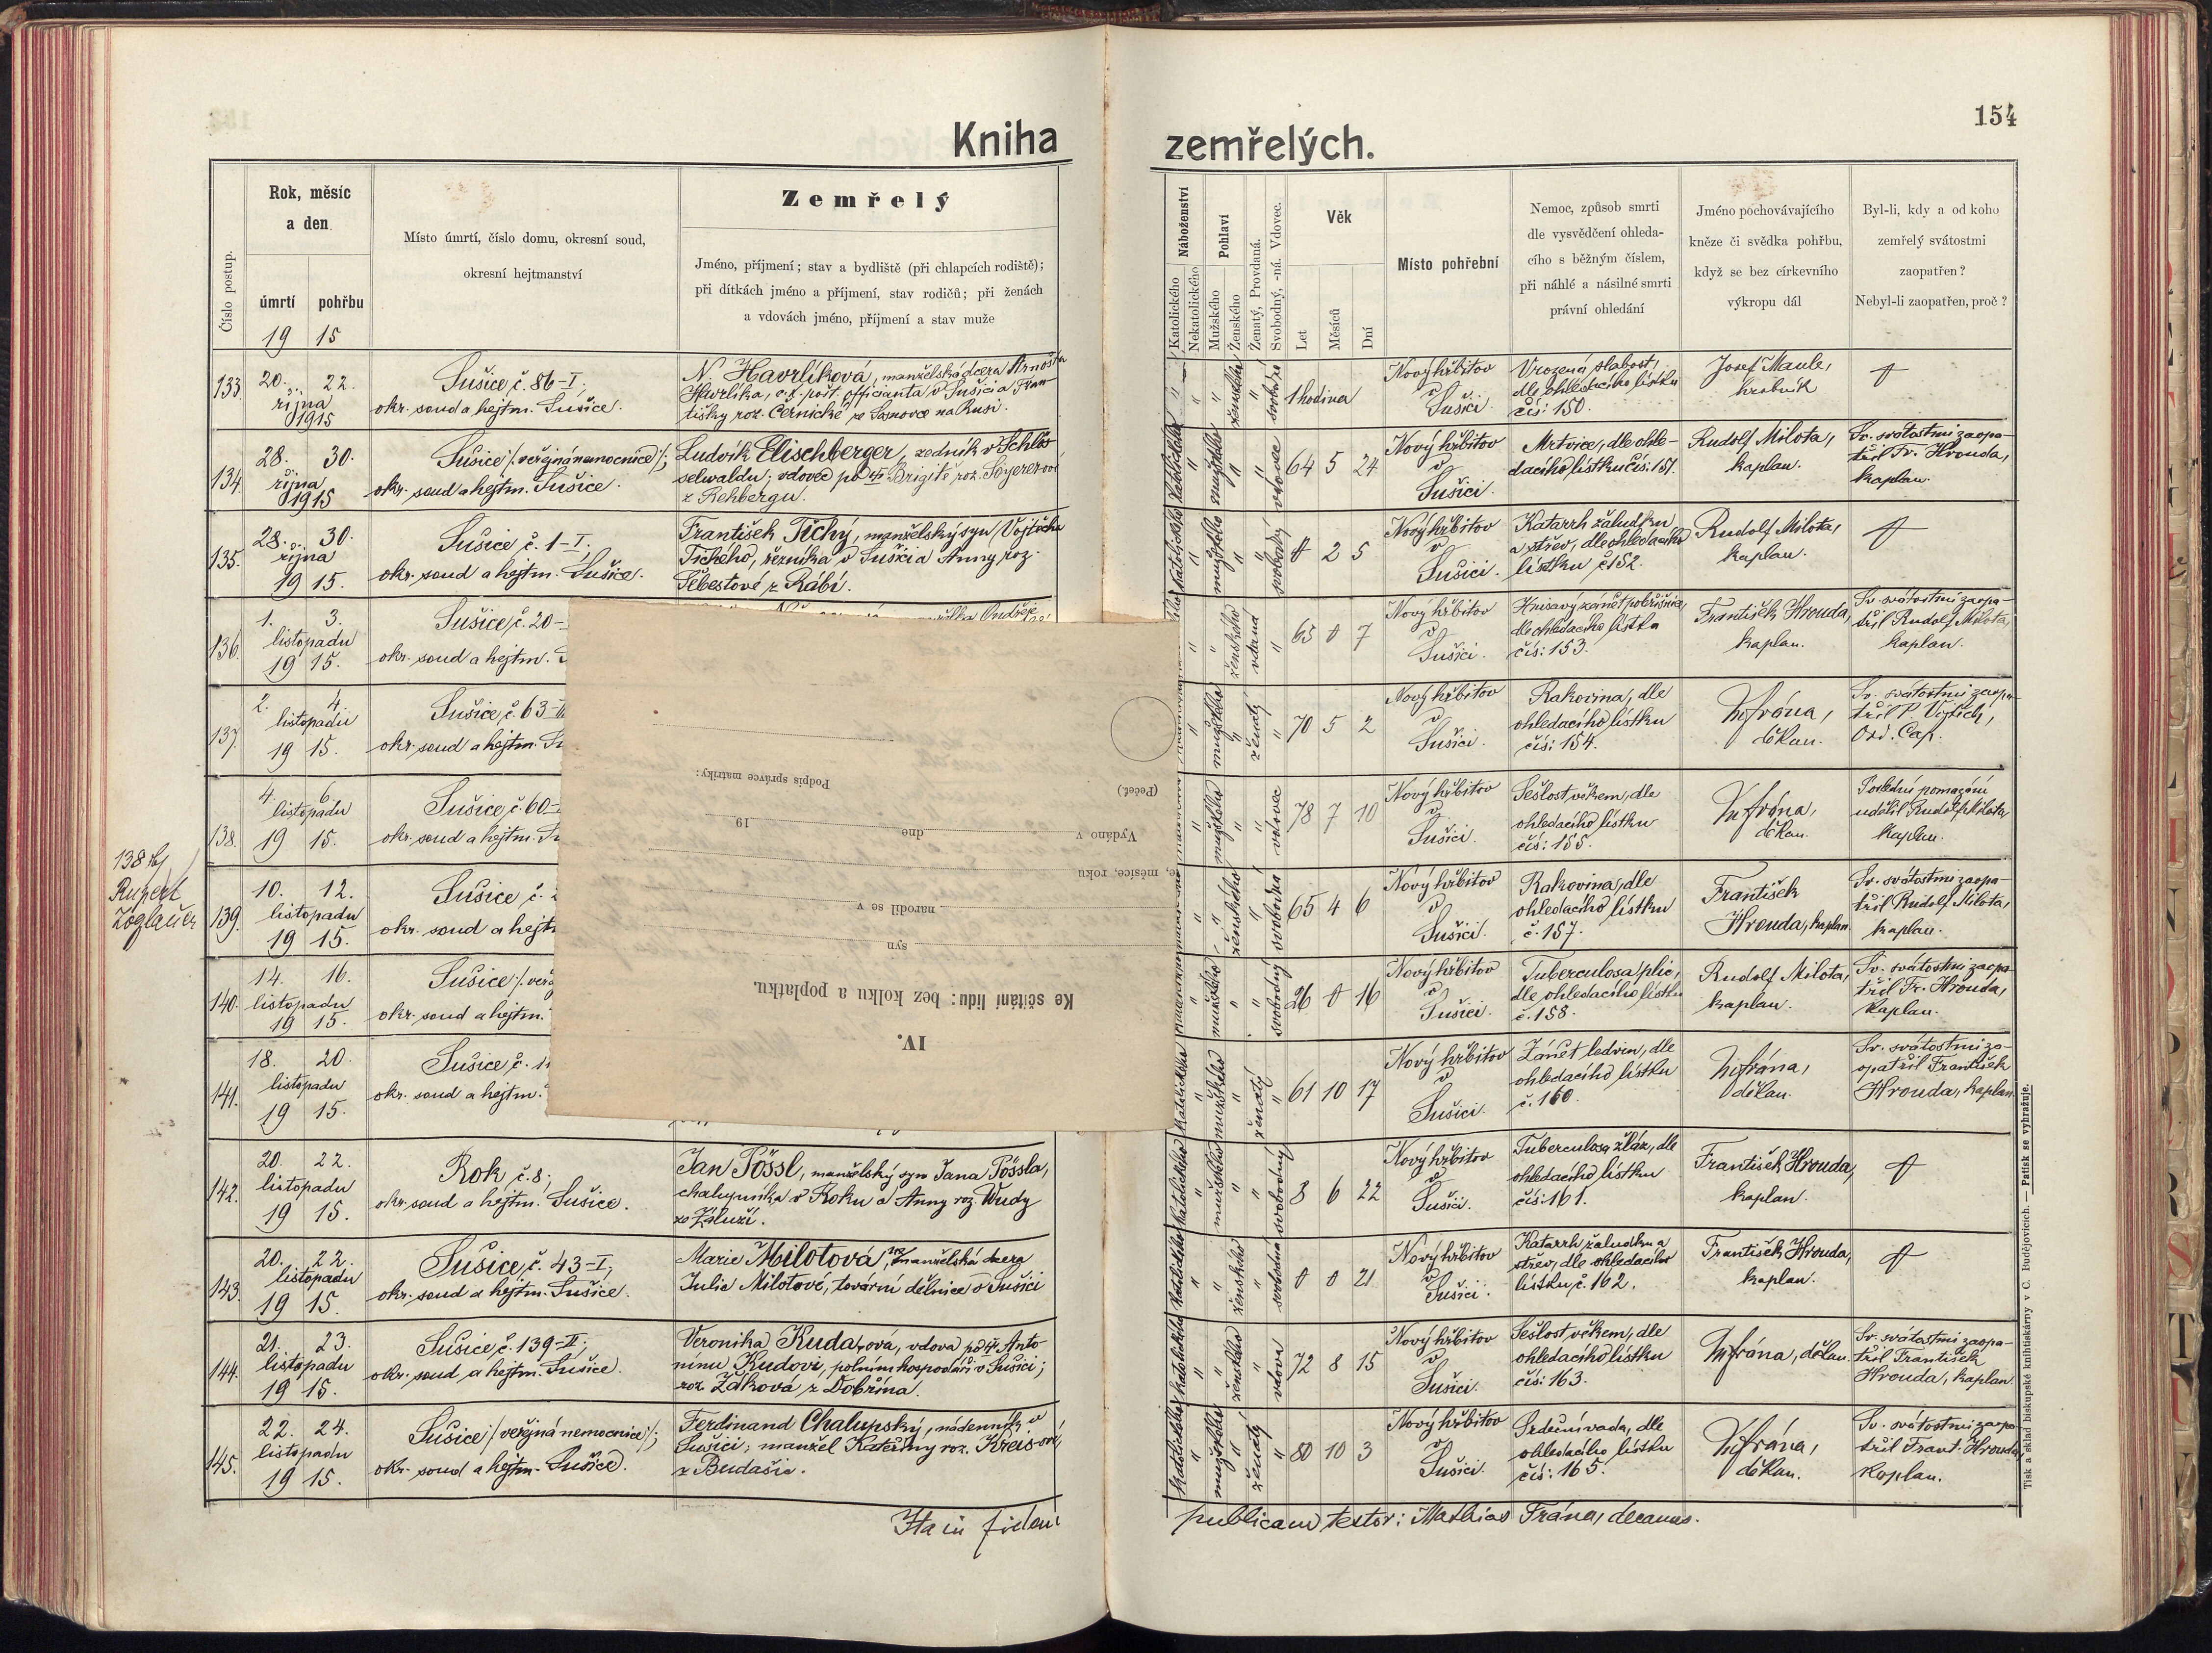 154
Kniha zemřelých.
Číslo postup.
Rok, měsíc
a den
úmrtí pohřbu
19 15
Místo úmrtí, číslo domu, okresní soud,
okresní hejtmanství
Zemřelý
Jméno, příjmení; stav a bydliště (při chlapcích rodiště);
při dítkách jméno a příjmení, stav rodičů; při ženách
a vdovách jméno, příjmení a stav muže
Náboženství
Katolického
Nekatolického
Pohlaví
Mužského
Ženského
Ženatý, Provdaná.
Svobodný, -ná. Vdovec.
Věk
Let
Měsíců
Dní
Místo pohřební
Nemoc, způsob smrti
dle vysvědčení ohleda-
cího s běžným číslem,
při náhlé a násilné smrti
právní ohledání
Jméno pochovávajícího
kněze či svědka pohřbu,
když se bez církevního
výkropu dál
Byl-li, kdy a od koho
zemřelý svátostmi
zaopatřen?
Nebyl-li zaopatřen, proč?
133. 20. 22.
října
1915
Sušice č. 86-I;
okr. soud a hejtm. Sušice.
N. Havrlíková, manželská dcera Arnošta
Havrlíka, c. k. pošt. officianta v Sušici a Fran
tišky roz. Černické ze Sosnovce na Rusi.
ženského
svobodná
1 hodina
Nový hřbitov
v
Sušici
Vrozená slabost,
dle ohledacího lístku
čís: 150.
Josef Maule,
hrobník
134. 28. 30.
října
1915
Sušice /: veřejná nemocnice :/;
okr. soud a hejtm. Sušice.
Ludvík Elischberger, zedník v Schlös
selwaldu; vdovec po Brigitě roz.
z Rehbergu.
katolického
mužského
vdovec
64 5 24
Nový hřbitov
v
Sušici.
Mrtvice, dle ohle-
dacího lístku čís: 151.
Rudolf Milota,
kaplan.
Sv. svátostmi zaopa-
třil Fr. Hrouda,
kaplan.
135. 28. 30.
října
19 15.
Sušice č. 1-I;
okr. soud a hejtm. Sušice.
František Tichý, manželský syn Vojtěcha
Tichého, řezníka v Sušici a Anny roz.
Šebestové z Rábí.
katolického
mužského
svobodný
0 2 5
Nový hřbitov
v
Sušici.
Katarrh žaludku
a střev, dle ohledacího
lístku č 152.
Rudolf Milota,
kaplan.
136. 1. 3.
listopadu
19 15.
Sušice, č. 20-
okr. soud a hejtm. S
Ondřeje
ženského
vdaná
65 0 7
Nový hřbitov
v
Sušici.
Hnisavý zánět pobřišnice,
dle ohledacího lístku
čís: 153.
František Hrouda,
kaplan.
Sv. svátostmi zaopa-
třil Rudolf Milota,
kaplan.
137. 2. 4.
listopadu
19 15.
Sušice, č. 63-
okr. soud a hejtm. Su
mužského
ženatý
70 5 2
Nový hřbitov
v
Sušici.
Rakovina, dle
ohledacího lístku
čís: 154.
děkan.
Sv. svátostmi zaopa-
třil P. Vojtěch,
Ord. Cap.
138. 4. 6.
listopadu
19 15.
Sušice, č. 60-
okr. soud a hejtm. Su
mužského
vdovec
78 7 10
Nový hřbitov
v
Sušici.
Sešlost věkem, dle
ohledacího lístku
čís: 155.
děkan.
Poslední pomazání
udělil Rudolf Milota,
kaplan.
138 b/
Rupert
Zoglauer
139. 10. 12.
listopadu
19 15.
Sušice č.
okr. soud a hejt
ženského
svobodná
65 4 6
Nový hřbitov
v
Sušici.
Rakovina, dle
ohledacího lístku
č. 157.
František
Hrouda, kaplan.
Sv. svátostmi zaopa-
třil Rudolf Milota,
kaplan.
140. 14. 16.
listopadu
19 15.
Sušice /: veř
okr. soud a hejtm.
mužského
svobodný
26 0 16
Nový hřbitov
v
Sušici.
Tuberculosa plic,
dle ohledacího lístku
č. 158.
Rudolf Milota,
kaplan.
Sv. svátostmi zaopa-
třil Fr. Hrouda,
kaplan.
141. 18. 20.
listopadu
19 15.
Sušice, č. 1
okr. soud a hejtm.
katolického
mužského
ženatý
61 10 17
Nový hřbitov
v
Sušici.
Zánět ledvin, dle
ohledacího lístku
č. 160.
děkan.
Sv. svátostmi za-
opatřil František
Hrouda, kaplan.
142. 20. 22.
listopadu
19 15.
Rok č. 8;
okr. soud a hejtm. Sušice.
Jan Pössl, manželský syn Jana Pössla,
chalupníka v Roku a Anny roz. Wudy
ze Záluží.
katolického
mužského
svobodný
3 6 22
Nový hřbitov
v
Sušici.
Tuberculosa žláz, dle
ohledacího lístku
čís: 161.
František Hrouda,
kaplan.
143. 20. 22.
listopadu
19 15.
Sušice, č. 43-I;
okr. soud a hejtm. Sušice.
Marie Milotová, nemanželská dcera
Julie Milotové, tovární dělnice v Sušici
katolického
ženského
svobodná
0 0 21
Nový hřbitov
v
Sušici.
Katarrh žaludku a
střev, dle ohledacího
lístku č. 162.
František Hrouda,
kaplan.
144. 21. 23.
listopadu
19 15.
Sušice, č. 139-II;
okr. soud a hejtm. Sušice.
Veronika Kudrová, vdova po Anto
nínu Kudovi, polním hospodáři v Sušici;
roz. Žďková z Dobřína.
katolického
ženského
vdova
72 8 15
Nový hřbitov
v
Sušici.
Sešlost věkem, dle
ohledacího lístku
čís: 163.
děkan.
Sv. svátostmi zaopa-
třil František
Hrouda, kaplan.
145. 22. 24.
listopadu
19 15.
Sušice /: veřejná nemocnice :/;
okr. soud a hejtm. Sušice.
Ferdinand Chalupský, nádenník v
Sušici; manžel Kateřiny roz. Kreis-ové
z Budašic.
katolického
mužského
ženatý
80 10 3
Nový hřbitov
v
Sušici.
Srdeční vada, dle
ohledacího lístku
čís: 165.
děkan.
Sv. svátostmi zaopa-
třil Frant. Hrouda,
kaplan.
Ita in fidem publicam testor: Mathias Frána, decanus.
IV.
Ke sčítání lidu: bez kolku a poplatku.
syn
narodil se v
e, měsíce, roku
Vydáno v dne 19
(Pečeť.)
Podpis správce matriky:
Tisk a sklad biskupské knihtiskárny v Č. Budějovicích. — Patisk se vyhražuje.